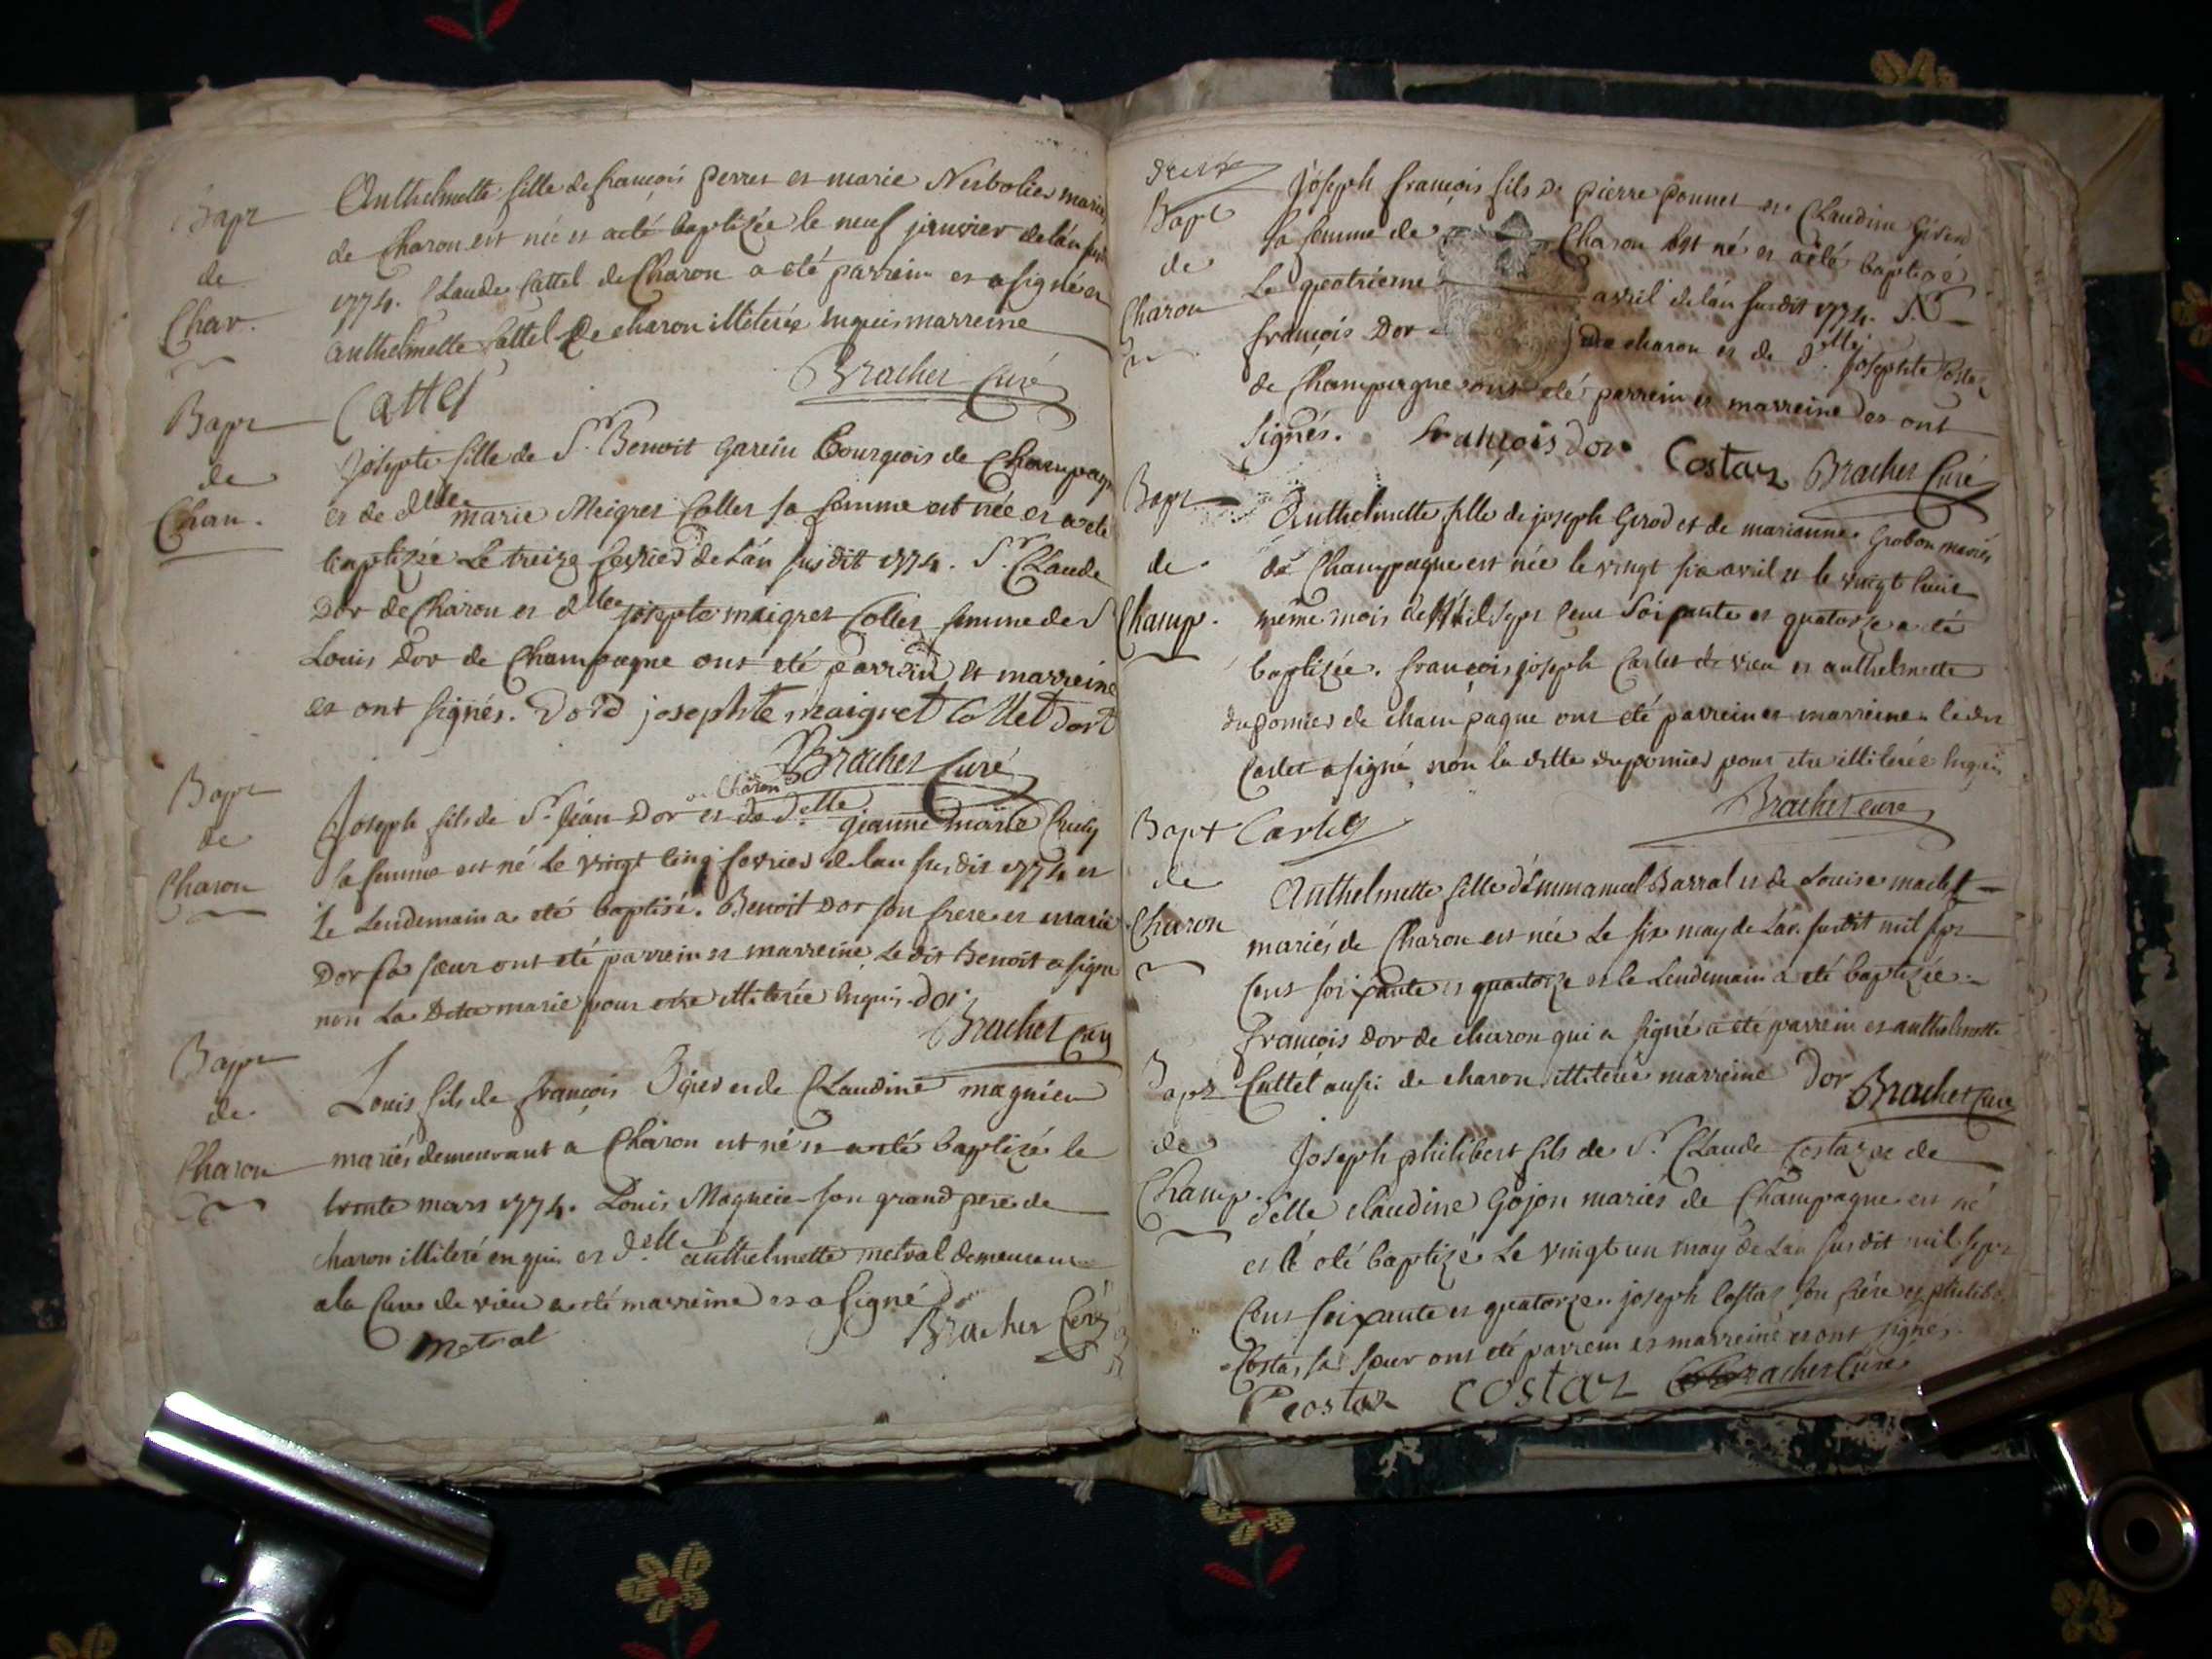 Bapt
de
Char.
Anthelmette fille de françois perret et marie
de Charon est née et a eté baptizée le neuf janvier de l'an susd
1774. Claude Cattel de Charon a eté parrein et a signé et
anthelmette Cattel de charon illiterée enquis marreine
Cattel Brachet Curé
Bapt
de
Chan.
Josepte fille de Sr. Benoit garcin Bourgeois de Champagn
et de delle marie Meigret Collet sa femme est née et a eté
baptizée Le treize fevrier de L'an susdit 1774. Sr. Claude
Dor de Charon et delle josepte maigret Collet femme de S
Louis Dor de Champagne ont eté parrein et marreine
et ont signés. Dord josephte maigret Collet dort
Brachet Curé
Bapt
de
Charon
de Charon
Joseph fils de Sr. Jean Dor et de Delle. jeanne marie
sa femme est né Le vingt cinq fevrier de lan susdit 1774 et
le Lendemain a eté baptisé. Benoit Dor son frere et marie
Dor sa sœur ont eté parrein et marreine Le dit Benoit a signé
non La Ditte marie pour etre illiterée enquis. dor
Brachet Curé
Bapt
de
Charon
Louis fils de françois et de Claudine magnien
mariés demeurant a Charon est né et a eté baptizé le
trente mars 1774. Louis Magnien son grand pere de
charon illiteré enquis et Delle anthelmette metral demeurant
a la Cure de vieu a eté marreine et a signé
metral Brachet Curé
Bapt
de
Charon
Joseph françois fils de pierre ponnet et Claudine
sa femme de Charon est né et a eté baptizé
Le quatrieme avril de l'an susdit 1774. Sr
françois Dor de charon et de Dlle josephte Costa
de Champagne ont eté parrein et marreine et ont
signés. françois Dor Costaz Brachet Curé
Bapt
de
Champ.
Anthelmette fille de joseph Girod et de marianne Grobon mariés
de Champagne est née le vingt six avril et le vingt huit
même mois de Mil Sept Cent Soixante et quatorze a eté
baptizée. françois joseph Carlet de vieu et anthelmette
duponier de champagne ont eté parrein et marreine. le dit
Carlet a signé non la ditte duponier pour etre illiterée enquis
Carlet Brachet curé
Bapt
de
Charon
Anthelmette fille d'Emmanuel Barral et de Louise
mariés de Charon est née Le six may de L'an susdit mil sept
Cent soixante et quatorze et le Lendemain a eté baptizée
françois Dor de charon qui a signé a eté parrein et anthelmette
Cattel aussi de charon illiterée marreine Dor Brachet Curé
Bapt
de
Champ.
Joseph philibert fils de Sr. Claude Costaz et de
delle claudine Gojon mariés de Champagne est né
et a eté baptizé Le vingt un may de Lan susdit mil Sept
Cent soixante et quatorze. joseph Costaz son frère et philibe
Costaz sa sœur ont eté parrein et marreine et ont signés.
P costaz costaz Brachet Curé